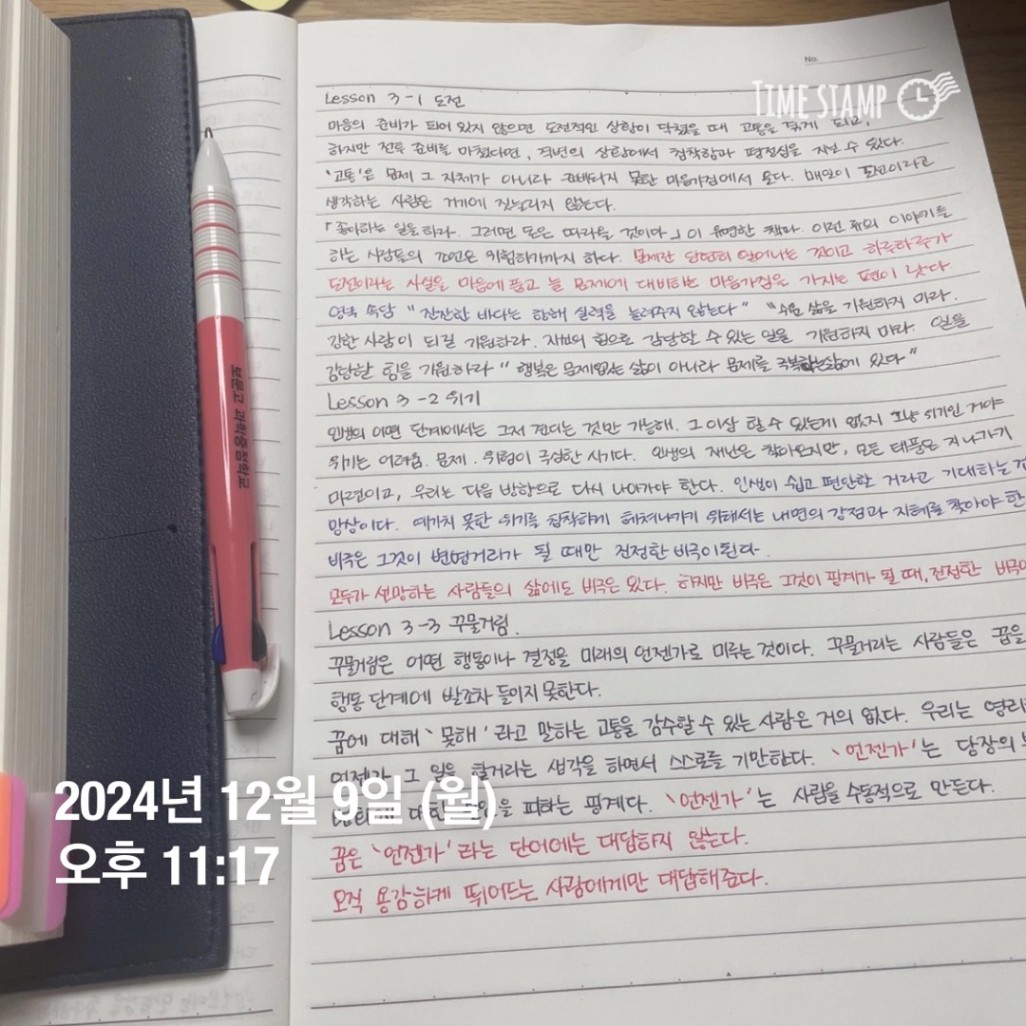 No.
TIME STAMP
Lesson 3-1 도전
마음의 준비가 되어 있지 않으면 도전적인 상황이 닥쳤을 때 고통을 겪게 되고,
하지만 전투 준비를 마쳤다면, 격변의 상황에서 침착함과 평정심을 지닐 수 있다.
'고통'은 문제 그 자체가 아니라 준비되지 못한 마음가짐에서 온다. 매일이 도전이라고
생각하는 사람은 거기에 짓눌리지 않는다.
「좋아하는 일을 하라. 그러면 돈은 따라올 것이다」이 유명한 책이다. 이런 류의 이야기를
하는 사람들의 조언은 위험하기까지 하다. 문제란 당연히 일어나는 것이고 하루하루가
도전이라는 사실을 마음에 품고 늘 문제에 대비하는 마음가짐을 가지는 편이 낫다
영국 속담 "잔잔한 바다는 항해 실력을 늘려주지 않는다" "쉬운 삶을 기원하지 마라.
강한 사람이 되길 기원하라. 자신의 힘으로 감당할 수 있는 일을 기원하지 마라. 일을
감당할 힘을 기원하라" "행복은 문제없는 삶이 아니라 문제를 극복하는 삶에 있다"
Lesson 3-2 위기
인생의 어떤 단계에서는 그저 견디는 것만 가능해. 그 이상 할 수 있는게 없지 그냥 위기인 거야
위기는 어려움. 문제. 위험이 극성한 시기다. 인생의 재난은 찾아오지만, 모든 태풍은 지나가기
마련이고, 우리는 다음 방향으로 다시 나아가야 한다. 인생이 쉽고 편안한 거라고 기대하는 건
망상이다. 예기치 못한 위기를 침착하게 헤쳐나가기 위해서는 내면의 강점과 지혜를 찾아야 한
비극은 그것이 변명거리가 될 때만 진정한 비극이 된다.
모두가 선망하는 사람들의 삶에도 비극은 있다. 하지만 비극은 그것이 핑계가 될 때, 진정한 비극이
Lesson 3-3 꾸물거림.
꾸물거림은 어떤 행동이나 결정을 미래의 언젠가로 미루는 것이다. 꾸물거리는 사람들은 꿈을
행동 단계에 발조차 들이지 못한다.
꿈에 대해 '못해'라고 말하는 고통을 감수할 수 있는 사람은 거의 없다. 우리는 영리
언젠가 그 일을 할거라는 생각을 하면서 스스로를 기만한다. '언젠가'는 당장의
대한 을 피하는 핑계다. '언젠가'는 사람을 수동적으로 만든다.
꿈은 '언젠가'라는 단어에는 대답하지 않는다.
오직 용감하게 뛰어드는 사람에게만 대답해준다.
보문고 과학중점학교
2024년 12월 9일 (월)
오후 11:17